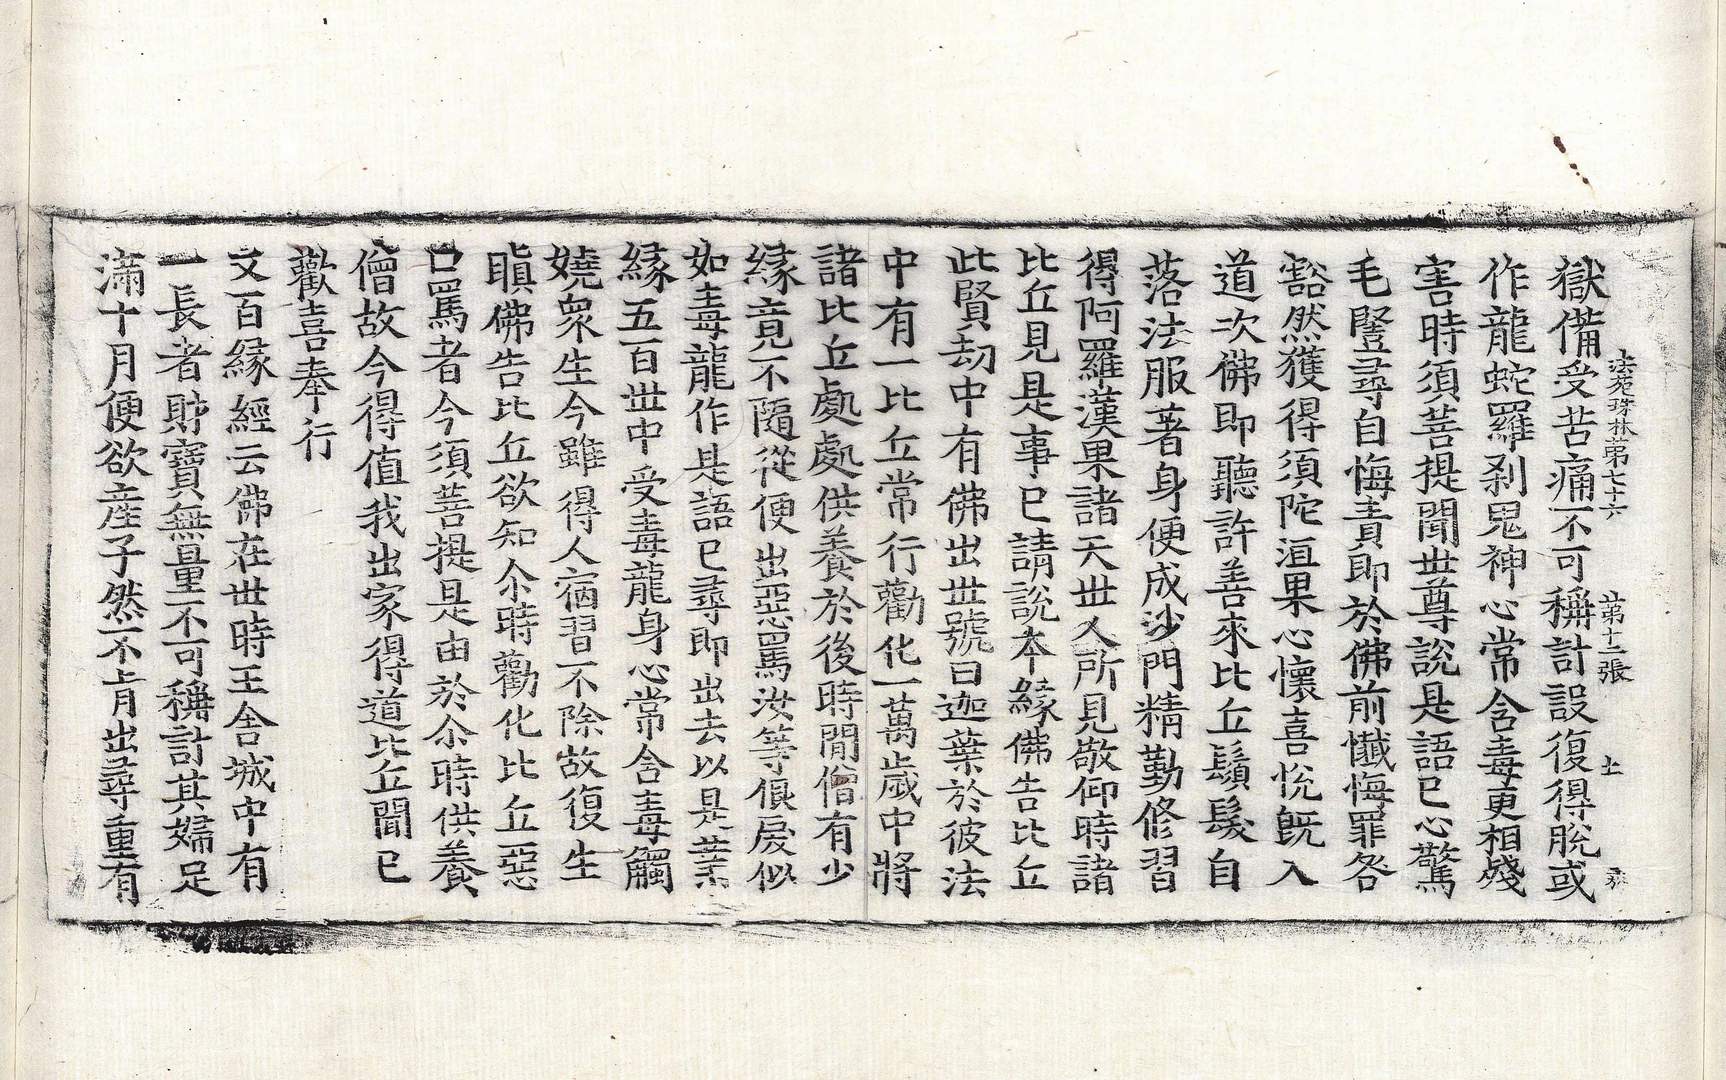 法苑珠林第七十六 第十二張
獄備受苦痛不可稱計設復得脫或
作龍蛇羅刹鬼神心常含毒更相殘
害時須菩提聞世尊說是語已心驚
毛豎尋自悔責即於佛前懺悔罪咎
豁然獲得須陀洹果心懷喜悅旣入
道次佛即聽許善來比丘鬚髮自
落法服著身便成沙門精勤修習
得阿羅漢果諸天世人所見敬仰時諸
比丘見是事已請說本緣佛告比丘
此賢劫中有佛出世號曰迦葉於彼法
中有一比丘常行勸化一萬歲中將
諸比丘處處供養於後時閒僧有少
緣竟不隨從便出惡罵汝等佷戾似
如毒龍作是語已尋即出去以是業
緣五百世中受毒龍身心常含毒觸
嬈衆生今雖得人宿習不除故復生
瞋佛告比丘欲知尒時勸化比丘惡
口罵者今須菩提是由於尒時供養
僧故今得值我出家得道比丘聞已
歡喜奉行
又百緣經云佛在世時王舍城中有
一長者財寶無量不可稱計其婦足
滿十月便欲產子然不肯出尋重有